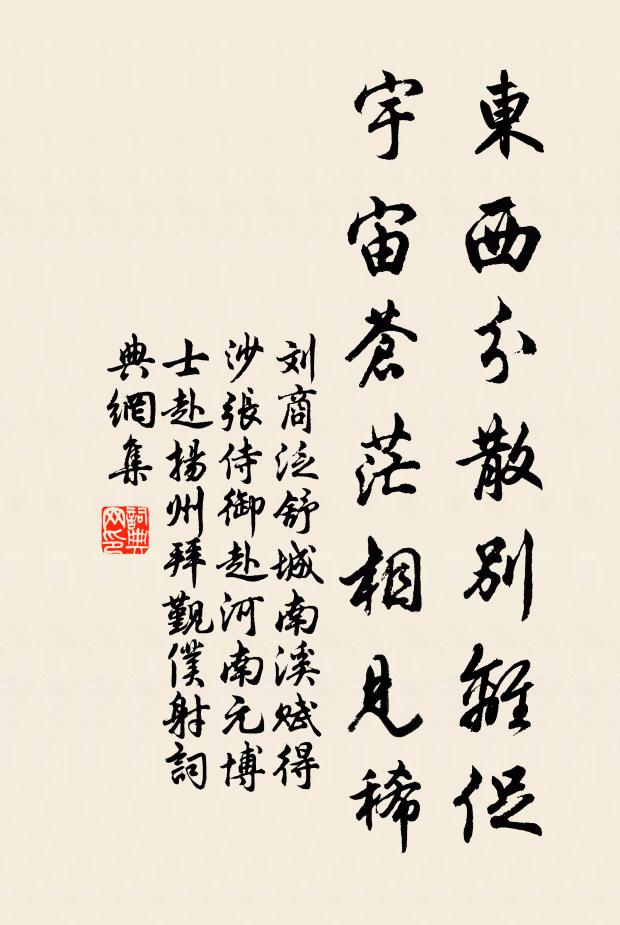 東西分散別離促
宇宙蒼茫相見稀
刘商泛舒城南溪賦得
沙張侍御赴河南元博
士赴揚州拜覲僕射詞
典網集
詞典
网印